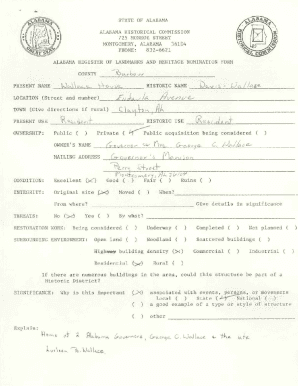 STATE OF ALABAMA
ALABAMA HISTORICAL COMMISSION
725 MONROE STREET
MONTGOMERY, ALABAMA 36130
PHONE: 832-6621
ALABAMA REGISTER OF LANDMARKS AND HERITAGE NOMINATION FORM
COUNTY Barbour
PRESENT NAME Wallace House HISTORIC NAME Davis-Wallace
LOCATION (Street and number) Eufaula Avenue
TOWN (Give directions if rural) Clayton, Al
PRESENT USE Resident HISTORIC USE Resident
OWNERSHIP: Public ( ) Private ( ) Public acquisition being considered ( )
OWNER'S NAME Governor & Mrs. George C. Wallace
MAILING ADDRESS Governor's Mansion
Perry Street
Montgomery, Al
CONDITION: Excellent ( ) Good ( ) Fair ( ) Ruins ( )
INTEGRITY: Original site ( ) Moved ( ) When?
From where? Give details in significance
THREATS: No ( ) Yes ( ) By who?
RESTORATION WORK: Being considered ( ) Underway ( ) Completed ( ) Not planned ( )
SURROUNDING ENVIRONMENT: Open land ( ) Woodland ( ) Scattered buildings ( )
Highway building density ( ) Commercial ( ) Industrial ( )
Residential ( ) Rural ( )
If there are numerous buildings in the area, could this structure be part of a
Historic District?
SIGNIFICANCE: Why is this important ( ) associated with events, persons, or movements
Local ( ) State ( ) National ( )
( ) a good example of a type or style of structure
( ) other
Explain:
Home of 2 Alabama Governors, George C. Wallace & the late
Lurleen B. Wallace